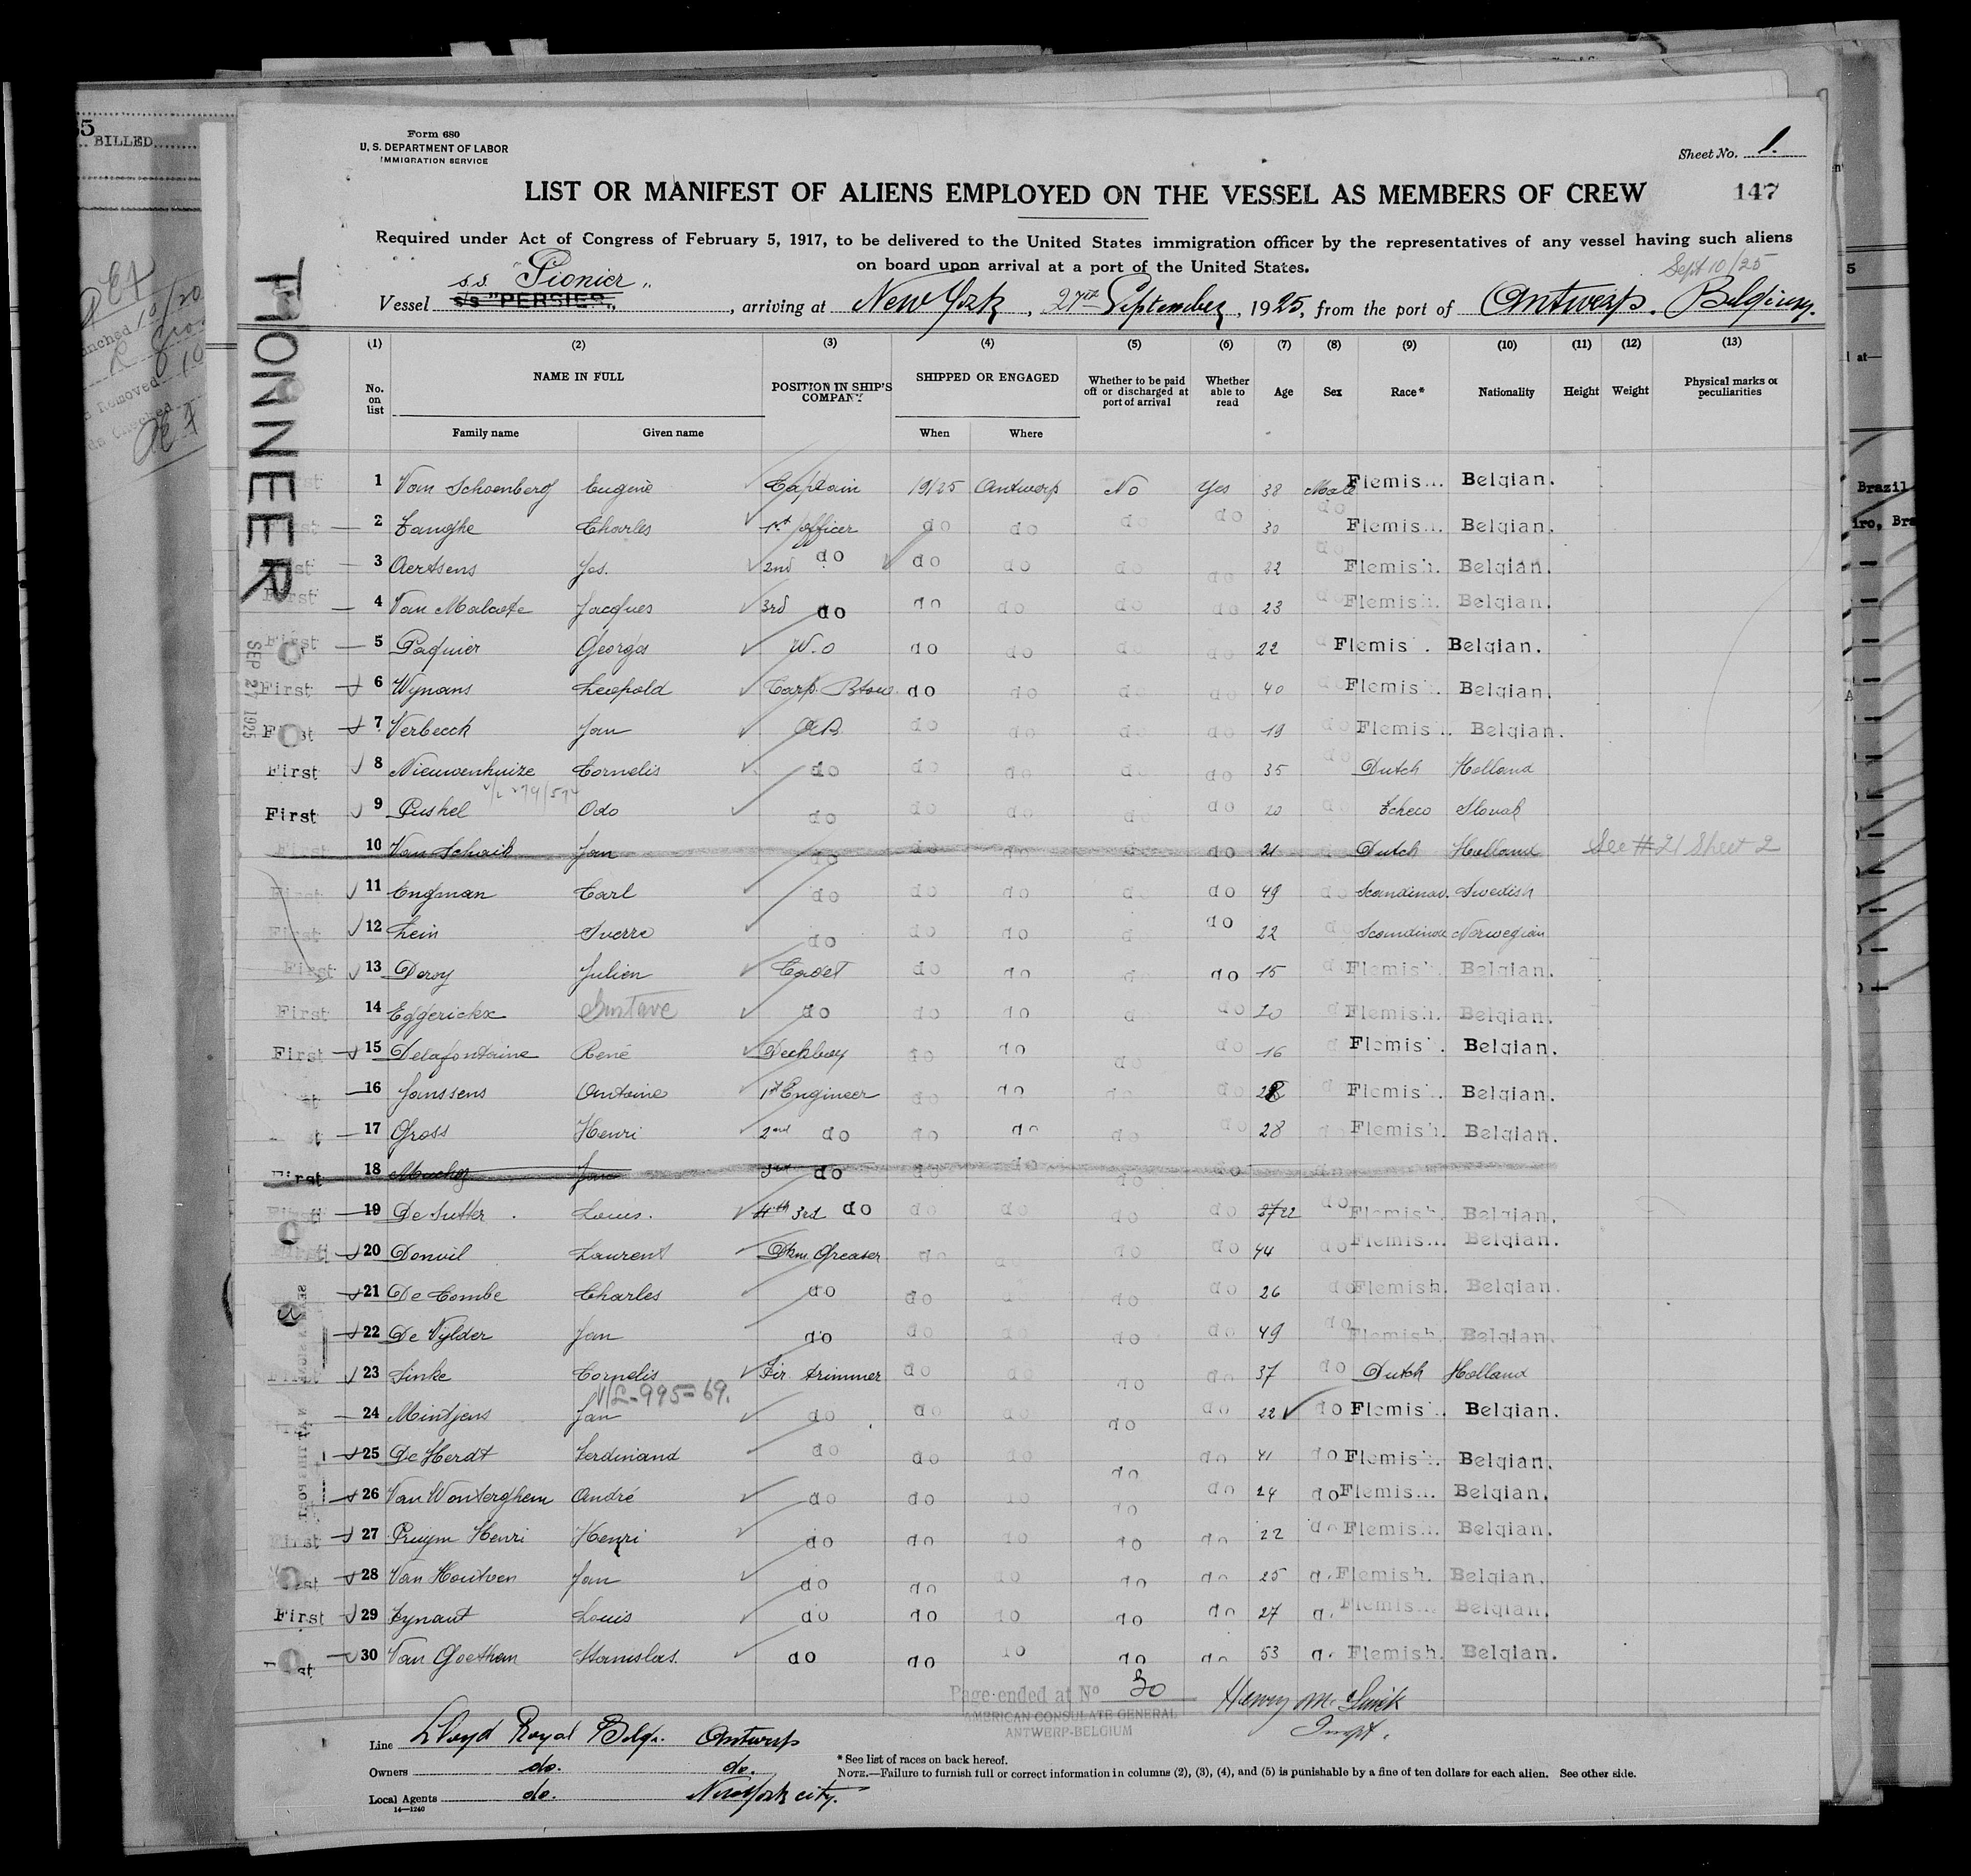 Form 680
U. S. DEPARTMENT OF LABOR
IMMIGRATION SERVICE
Sheet No. 1.
LIST OR MANIFEST OF ALIENS EMPLOYED ON THE VESSEL AS MEMBERS OF CREW
147
Required under Act of Congress of February 5, 1917, to be delivered to the United States immigration officer by the representatives of any vessel having such aliens
on board upon arrival at a port of the United States.
Sept 10/25
s.s. "Pionier"
Vessel s/s "PERSIER", arriving at New York, 27th September, 1925, from the port of Antwerp. Belgium.
PIONNEER
SEP 27 1925
(1) (2) (3) (4) (5) (6) (7) (8) (9) (10) (11) (12) (13)
No. on list NAME IN FULL POSITION IN SHIP'S COMPANY SHIPPED OR ENGAGED Whether to be paid off or discharged at port of arrival Whether able to read Age Sex Race* Nationality Height Weight Physical marks or peculiarities
Family name Given name When Where
1 Van Schoenberg Eugène Captain 19/25 Antwerp No Yes 38 Male Flemish. Belgian.
First 2 Tanghe Charles 1st officer do do do do 30 do Flemish. Belgian.
First 3 Aertsens Jos. 2nd do do do do do 22 do Flemish. Belgian.
First 4 Van Malcote Jacques 3rd do do do do do 23 do Flemish. Belgian.
First 5 Paquier Georges W.O do do do do 22 do Flemish. Belgian.
First 6 Wynans Leopold Carp. do do do do 40 do Flemish. Belgian.
First 7 Verbeeck Jan A.B. do do do do 19 do Flemish. Belgian.
First 8 Nieuwenhuize Cornelis do do do do do 35 do Dutch Holland
First 9 Pushel Odo do do do do do 20 do Tcheco Slovak
First 10 Van Schaik Jan do do do do do 21 do Dutch Holland See #21 Sheet 2
First 11 Engman Carl do do do do do 49 do Scandinav. Swedish
First 12 Lein Sverre do do do do do 22 Scandinav Norwegian
First 13 Deroy Julien Cadet do do do do 15 do Flemish. Belgian.
First 14 Eggerickx Gustave do do do do do 20 do Flemish. Belgian.
First 15 Delafontaine René Deckboy do do do do 16 do Flemish. Belgian.
16 Janssens Antoine 1st Engineer do do do do 28 do Flemish. Belgian.
17 Gross Henri 2nd do do do do do 28 do Flemish. Belgian.
First 18 Jan 3rd do do do do do do
First 19 De Sutter Louis. 4th 3rd do do do do do 37 22 do Flemish. Belgian.
First 20 Donvil Laurent Dkm. Greaser do do do do 44 do Flemish. Belgian.
21 De Combe Charles do do do do do 26 do Flemish. Belgian.
22 De Vylder Jan do do do do do 49 do Flemish. Belgian.
First 23 Sinke Cornelis Fir. trimmer do do do do 37 do Dutch Holland
V/L-995=69.
24 Mintjens Jan do do do do do 22 do Flemish. Belgian.
25 De Herdt Ferdinand do do do do do 41 do Flemish. Belgian.
26 Van Wonterghem André do do do do do 24 do Flemish. Belgian.
First 27 Pruym Henri Henri do do do do do 22 do Flemish. Belgian.
First 28 Van Houtven Jan do do do do do 25 do Flemish. Belgian.
First 29 Fynaut Louis do do do do do 27 do Flemish. Belgian.
First 30 Van Goethem Stanislas. do do do do do 53 do Flemish. Belgian.
Page ended at No 30
AMERICAN CONSULATE GENERAL
ANTWERP-BELGIUM
Henry M.
Inspt.
Line Lloyd Royal Belge. Antwerp
Owners do. do.
Local Agents do. New York city.
14—1240
*See list of races on back hereof.
NOTE.—Failure to furnish full or correct information in columns (2), (3), (4), and (5) is punishable by a fine of ten dollars for each alien. See other side.
BILLED
Removed
Brazil